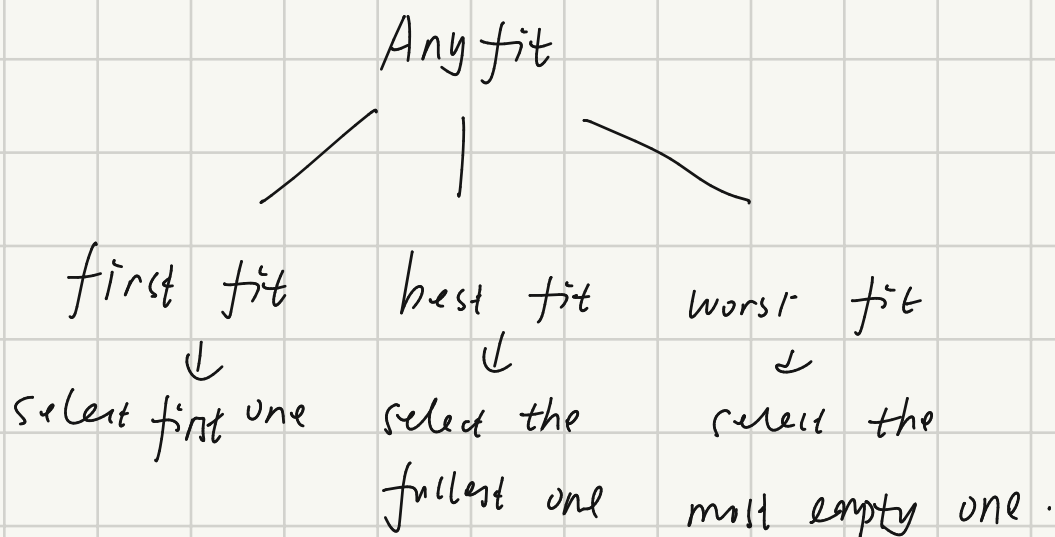 Any fit
first fit
best fit
worst fit
select first one
select the
fullest one
select the
most empty one.